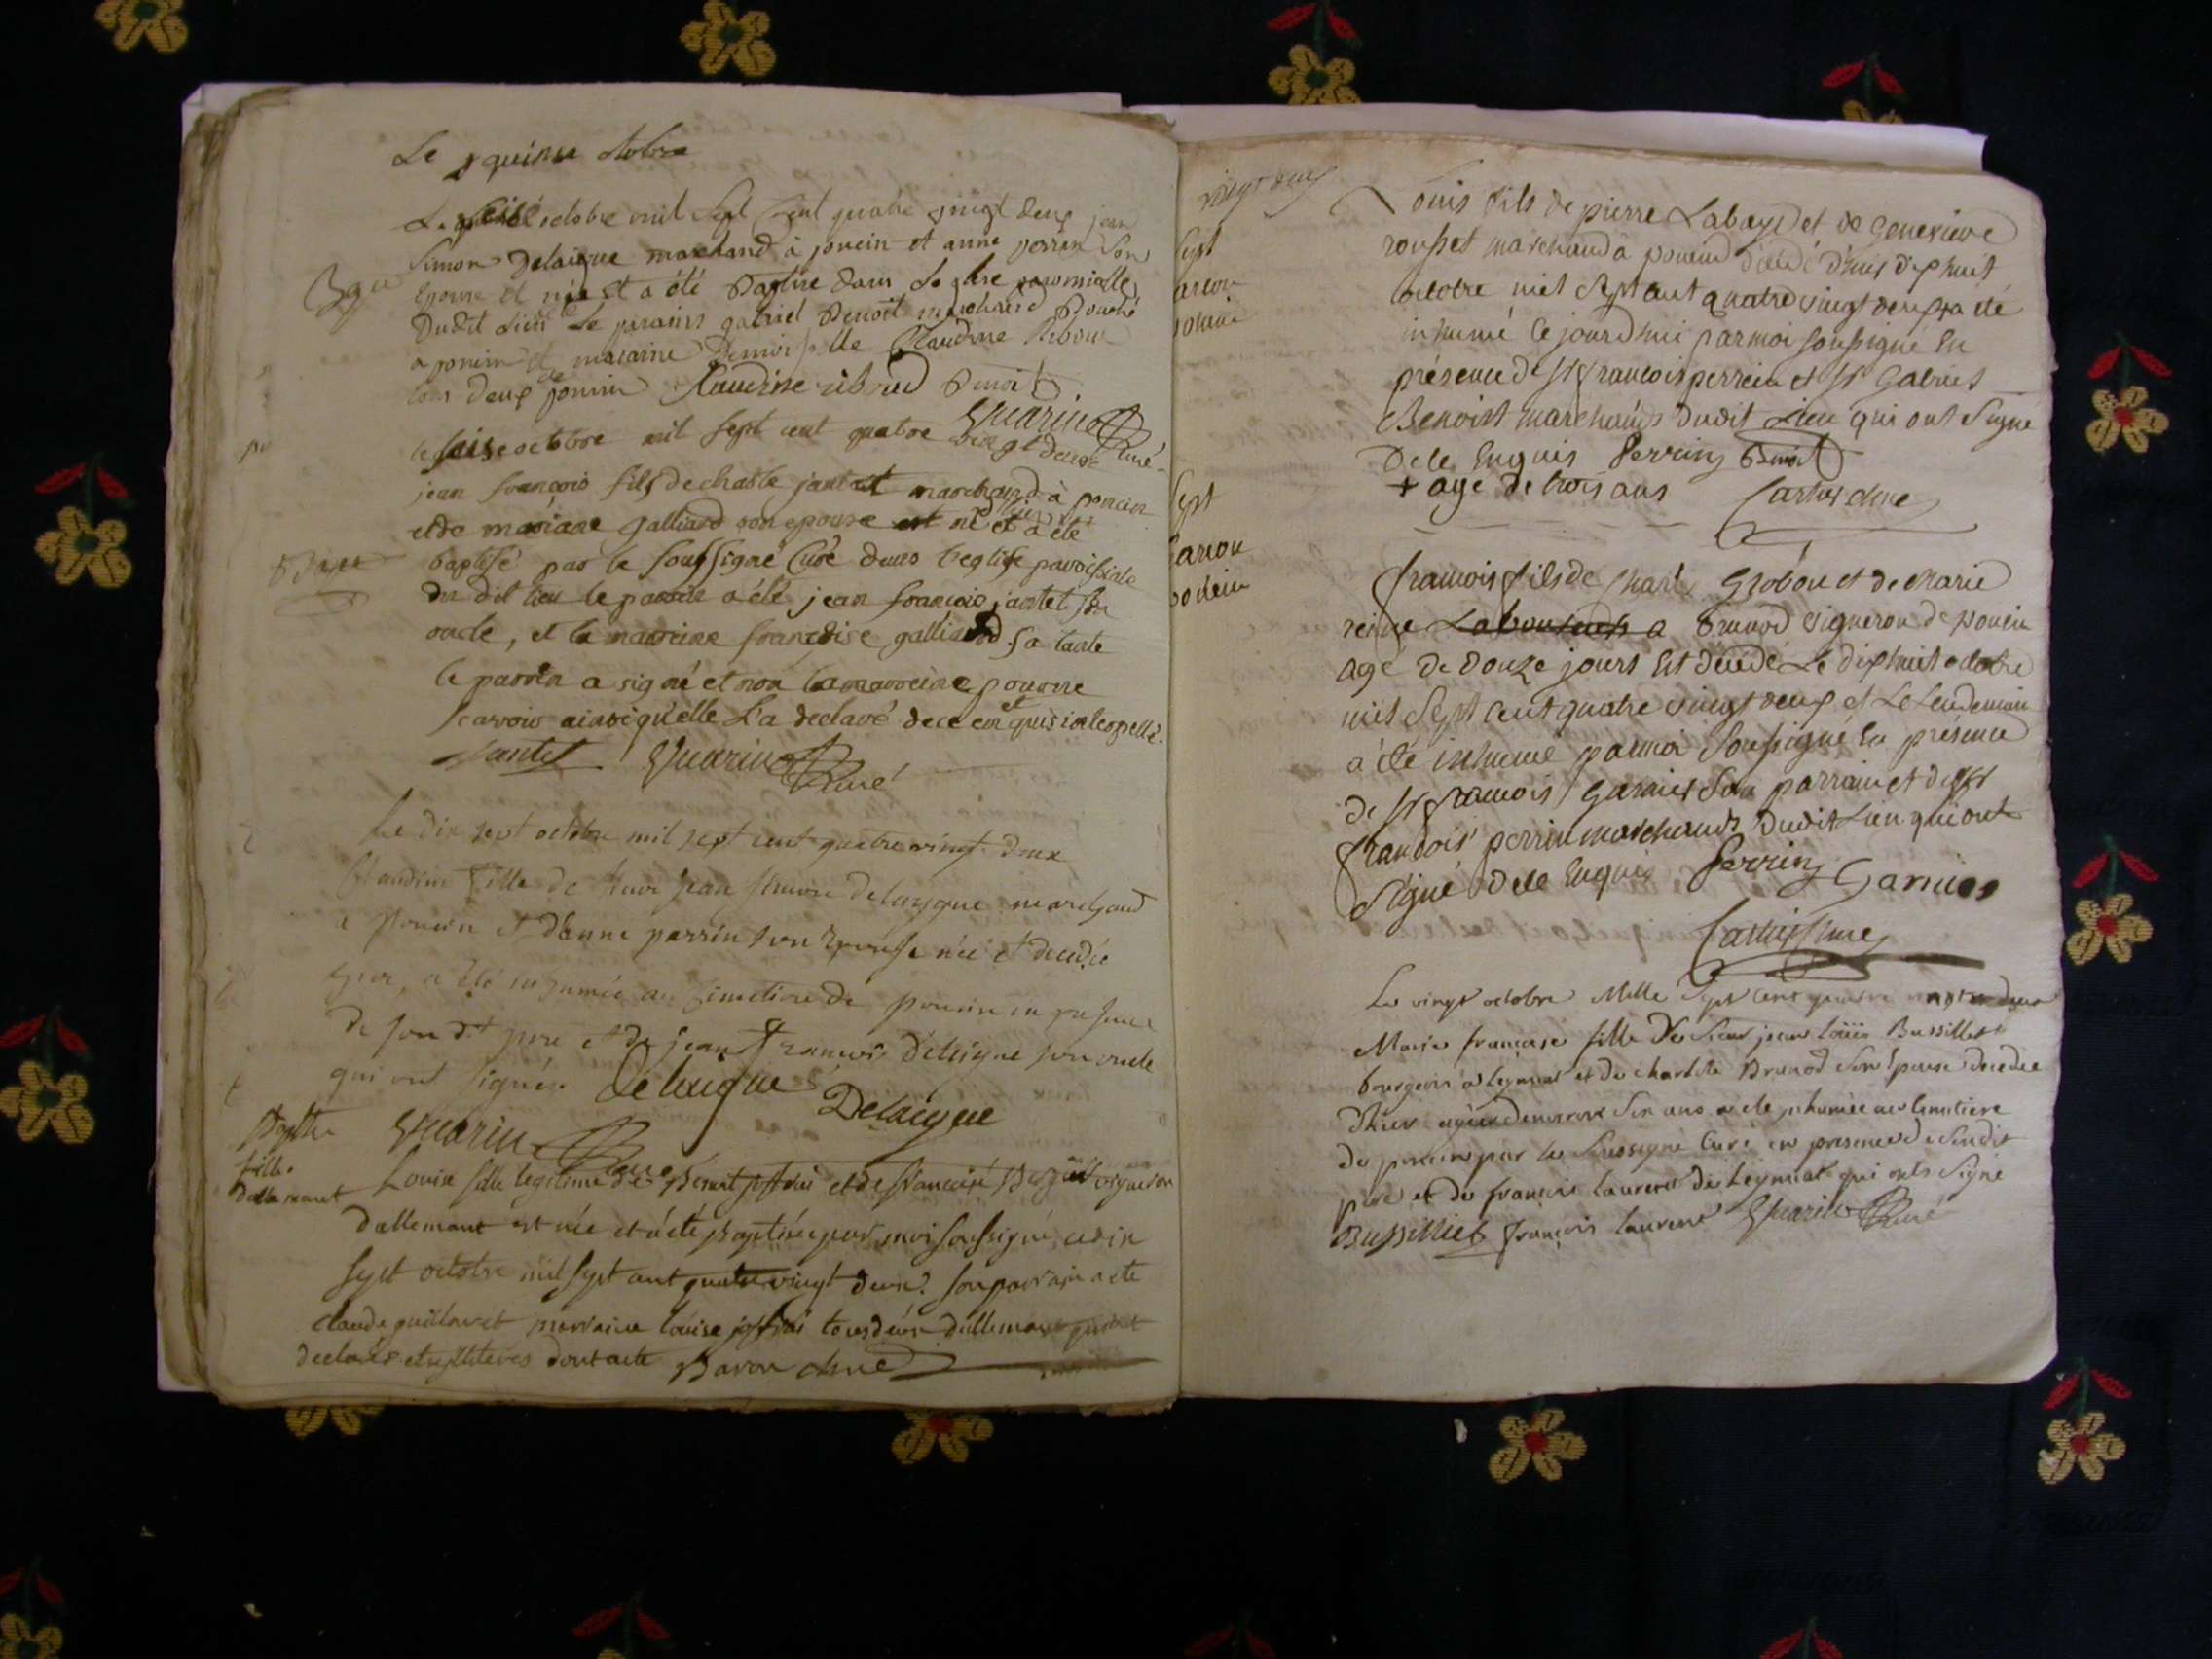 Le quinse octobre
Le seise octobre mil Sept Cent quatre vingt deux jean
Simon Delaigue marchand à poncin et anne perrin Son
Epouse Et née et a été Baptise dans Leglise paroissialle
Dudit Lieu Le parains gabriel Benoit marchand
a poncin et maraine Demoiselle Claudine
tous deux poncin Claudine riboud Benoit
Guarin Curé
le seise octobre mil sept cent quatre vingt deux
jean françois fils de charle jantet marchand à poncin
et de mariane galliard son epouse est né hier et a été
Baptes
baptisé par le soussigné Curé dans l'eglise paroissiale
du dit lieu le parrain a été jean francois jantet son
oncle, et la marreine françoise galliard sa tante
le parrin a signé et non la marreine pour ne
scavoir ainsi qu'elle L'a declaré de ce enquis et interpellé.
Jantet Guarin Curé
Le dix sept octobre mil sept cent quatre vingt deux
Claudine fille de sieur jean simon delaigue marchand
a poncin et d'anne perrin son epouse née et decedée
hyer, a été inhumée au cimetiere de poncin en presence
de son dt pere et de jean françois delaigue son oncle
qui ont signés. Delaigue Delaigue
Guarin Curé
Bapte
fille
dallemant
Louise fille legitime de Benoit joffrai et de francoise vigneron
dallemant est née et a été Baptisée par moi soussigné, ce dix
sept octobre mil sept cent quatre vingt deux. son parrain a été
claude guillaret marraine louise joffrai tous deux dallemant
declarés illiteres dont acte Baron Curé
vingt deux
Sept
Louis fils de pierre Labaye et de Genevieve
rousset marchand à poncin décédé d'hier dixhuit
octobre mil Sept cent quatre vingt deux + a été
inhumé ce jourdhui par moi soussigné En
présence de Sr francois perrein et Sr Gabriel
Benoist marchands dudit Lieu qui ont Signe
De ce Enquis Perrin Benoit
+ age de trois ans
francois fils de Charle Grobon et de Marie
reine Laboureuse a Brunod vigneron de poncin
agé de Douze jours Est décédé Le dixhuit octobre
mil Sept cent quatre vingt deux et Le Lendemain
a été inhumé par moi Soussigné En présence
de Sr francois Garnier Son parrain et de Sr
francois perrin marchands dudit Lieu qui ont
Signé De ce Enquis Perrin Garnier
Le vingt octobre Mille Sept Cent quatre vingt deux
Marie francoise fille De Sieur jean louis Bussillet
bourgeois a Leymiat et de charlote Brunod Son Epouse decedee
D'hier agée denviron Six ans a ete inhumée au Cimetiere
de poncin par le Soussigné Curé en presence de Sondit
pere et de francois laurent de Leymiat qui onts Signé
Bussilliet françois laurent Guarin Curé